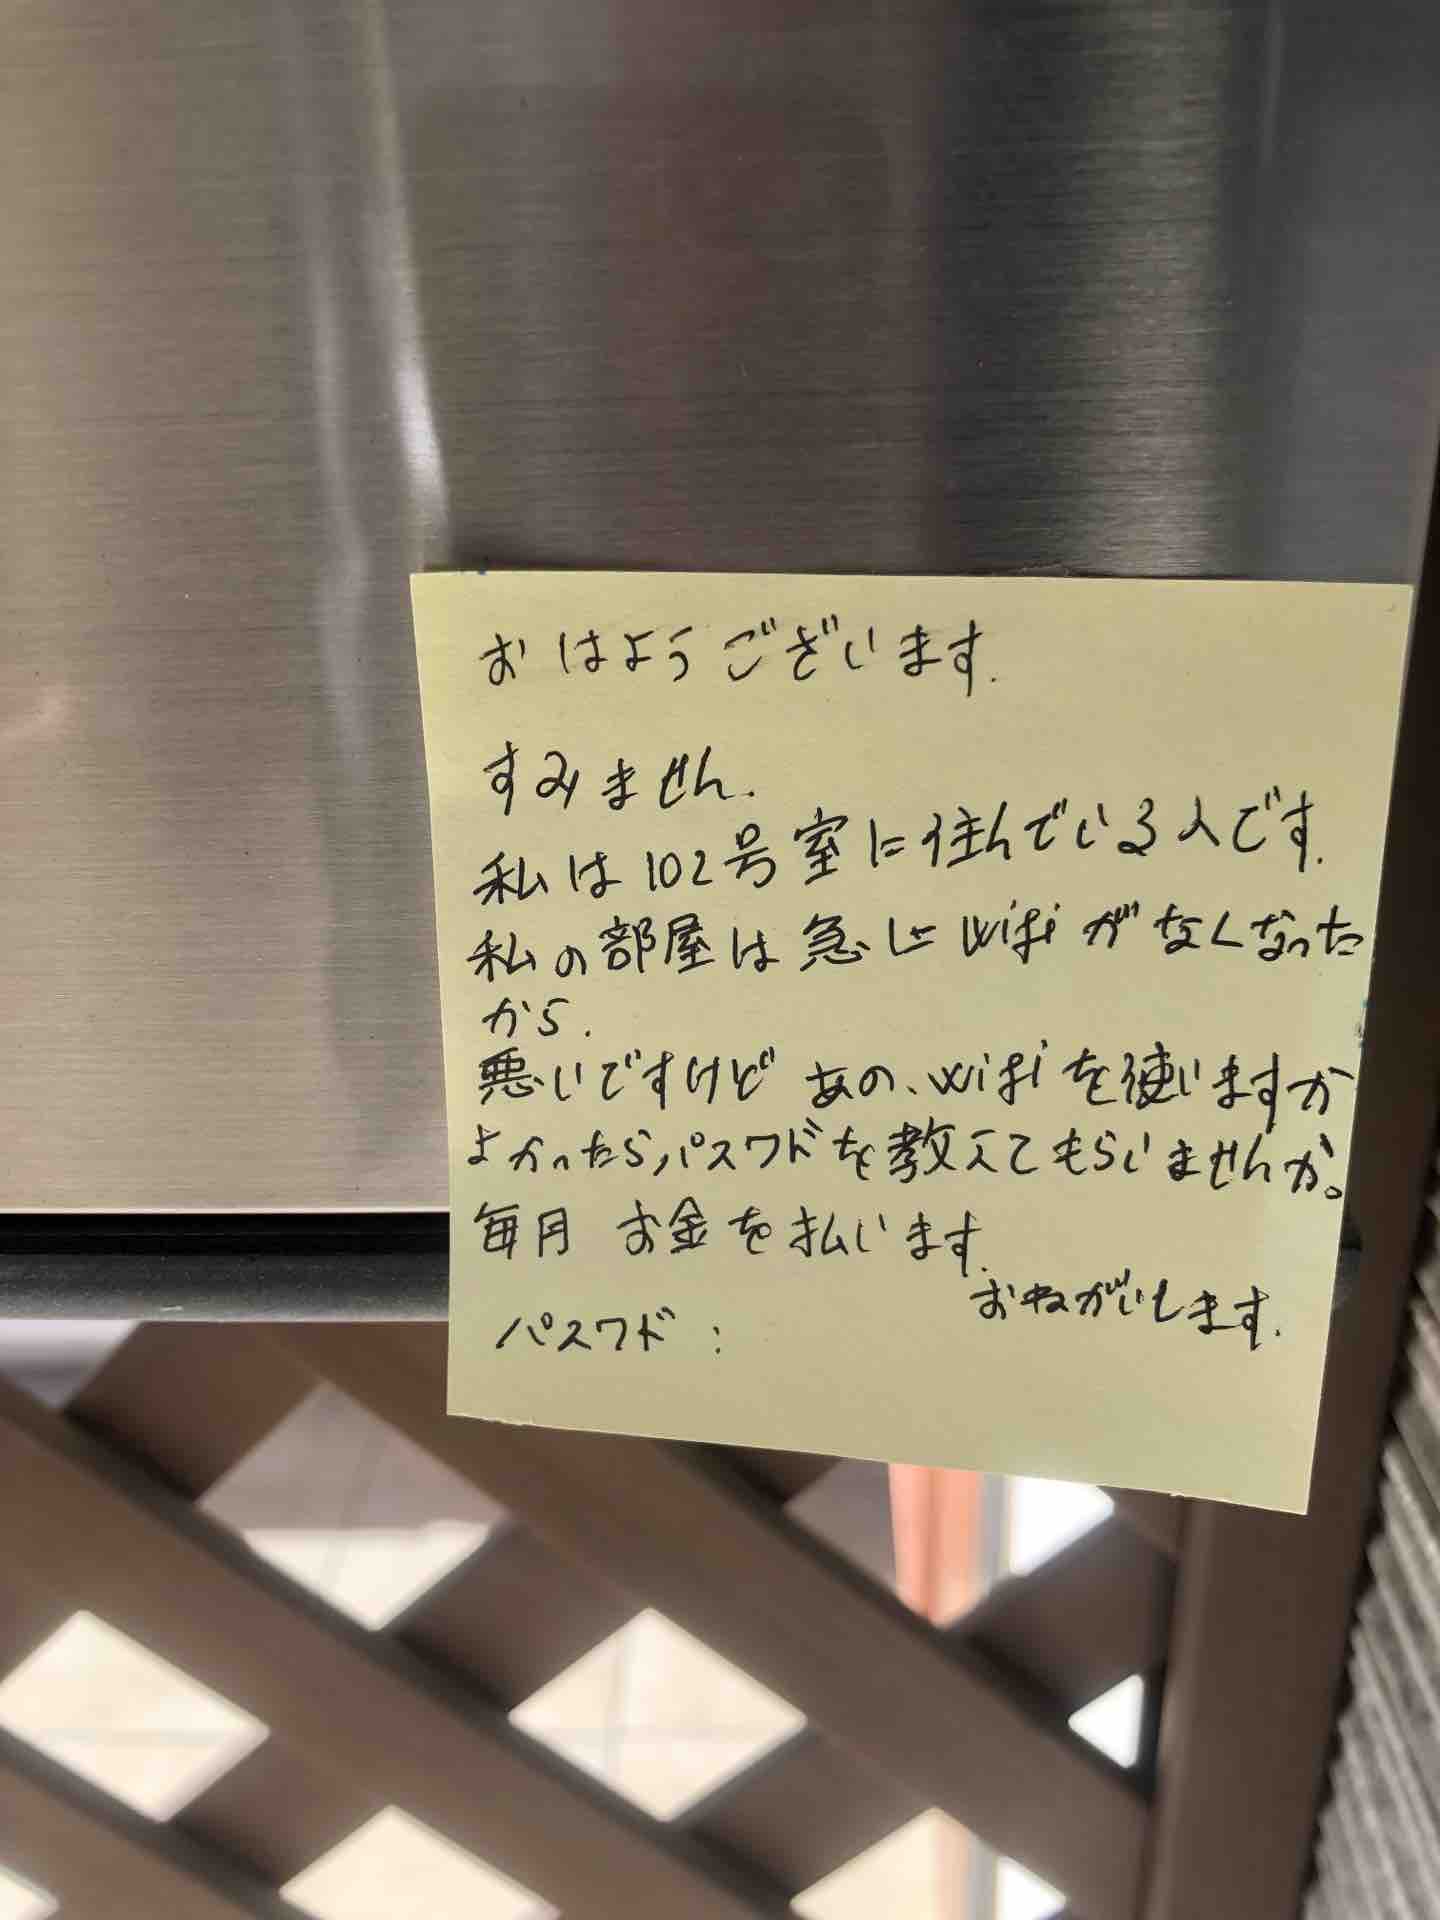 おはようございます.
すみません.
私は102号室に住んでいる人です.
私の部屋は急にwifiがなくなった
から.
悪いですけど あの、wifiを使いますか
よかったら,パスワドを教えてもらいませんか。
毎月 お金を払います.
おねがいします.
パスワド: